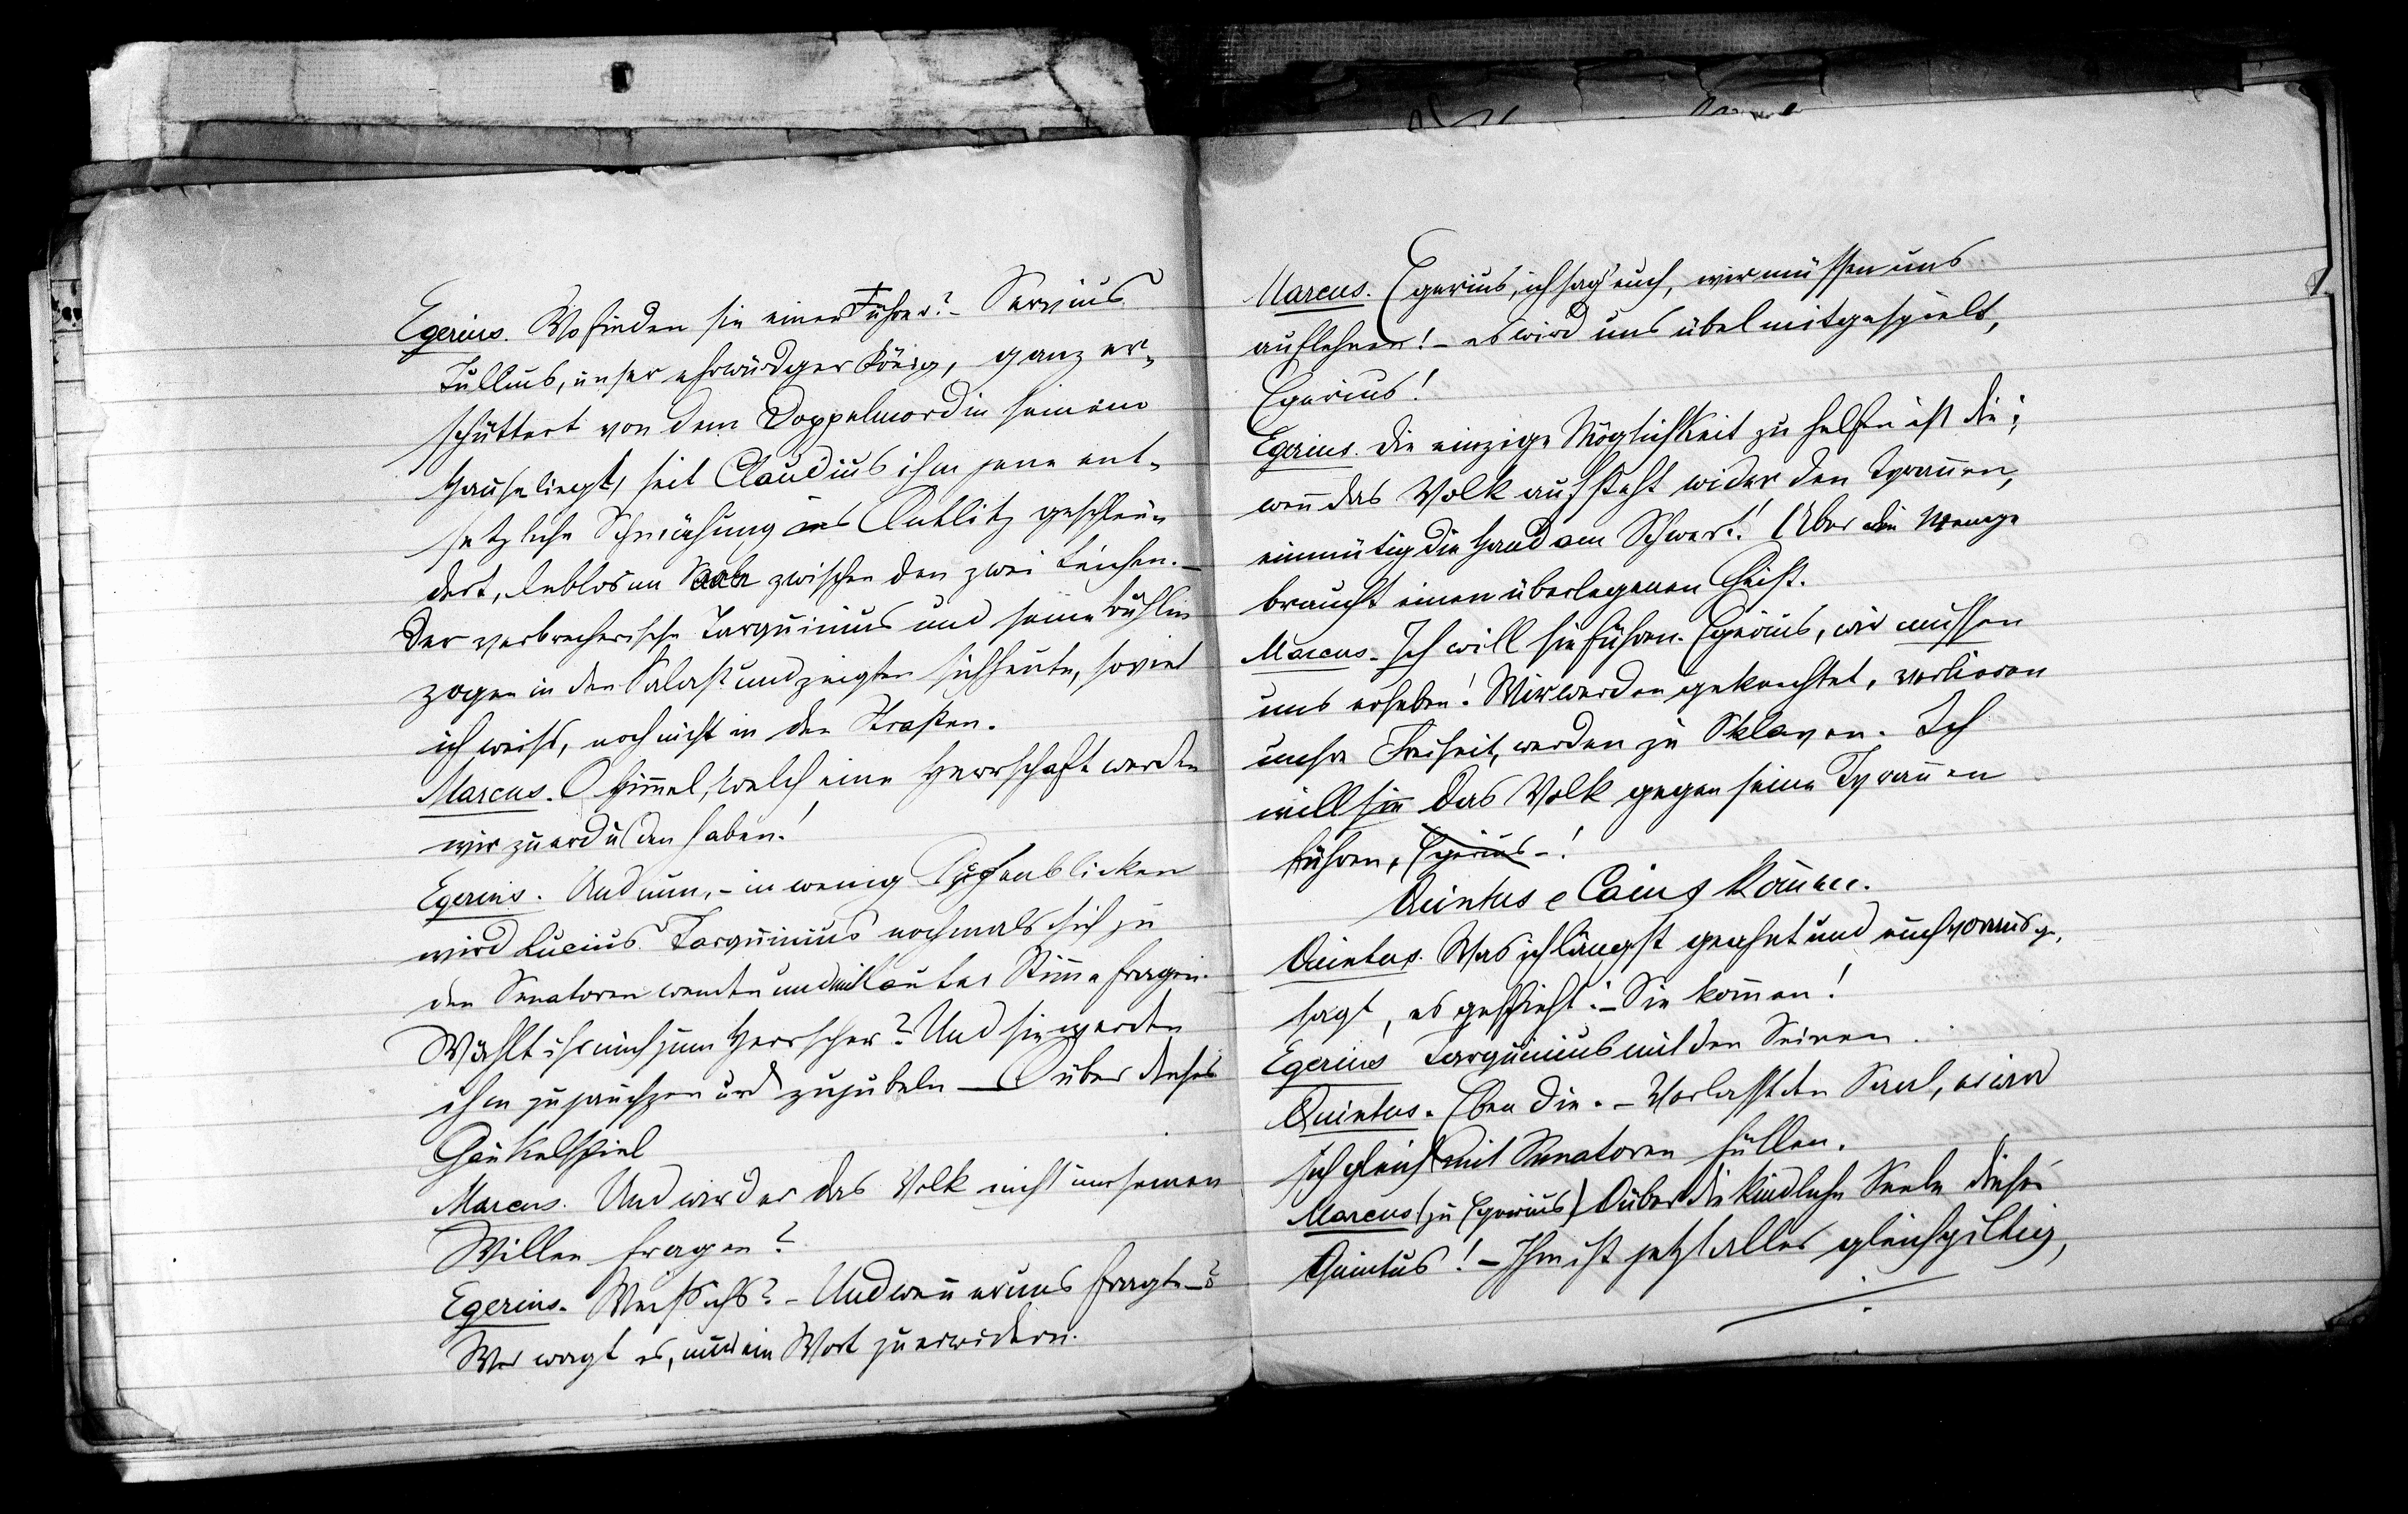 Egerius. Wo finden sie einen Führer? – Servius
Tullius, unser ehrwürdger König, ganz er-
schüttert von dem Doppelmord in seinem
Hause liegt, seit Claudius ihm jene ent-
setzliche Schmähung ins Antlitz geschleu-
dert, leblos im Saale zwischen den zwei Leichen. –
Der verbrecherische Tarquinius und seine Buhlin
zogen in den Palast und zeigten sich heute, soviel
ich weiss, noch nicht in den Straßen.
Marcus. O Him̄el, welch eine Herrschaft werden
wir zu erdulden haben!
Egerius. Und nun, – in wenig Augenblicken
wird Lucius Tarquinius nochmals sich zu
den Senatoren wenden und mit lauter Stim̄e fragen:
Wählt ihr mich zum Herrscher? Und sie werden
ihm zujauchzen und zujubeln – O über dieses
Gaukelspiel
Marcus. Und wird er das Volk nicht um seinen
Willen fragen?
Egerius. Weiß ichs? – Und wen̄ er uns fragte –?
Wer wagt es, nur ein Wort zu erwidern.
Marcus. Egerius, ich sag' euch, wir müssen uns
auflehnen! – es wird uns übel mitgespielt,
Egerius!
Egerius. Die einzige Möglichkeit zu helfen ist die:
wen̄ das Volk aufsteht wider den Tyran̄en,
einmütig die Hand am Schwert! Aber die Menge
braucht einen überlegenen Geist.
Marcus. Ich will sie führen. Egerius, wir müssen
uns erheben! Wir werden geknechtet, verlieren
unsre Freiheit, werden zu Sklaven. Ich
will das Volk gegen seine Tyran̄en
führen, Egerius – !
Quintus e Caius kom̄en.
Quintus. Was ich längst geahnt und euch vorausge-
sagt, es geschieht: – Sie kom̄en!
Egerius Tarquinius mit den Seinen.
Quintus. Eben die. – Verlasst den Saal, er wird
sich gleich mit Senatoren füllen.
Marcus (zu Egerius) O über die kindliche Seele dieses
Quintus! – Ihm ist jetzt alles gleichgiltig,